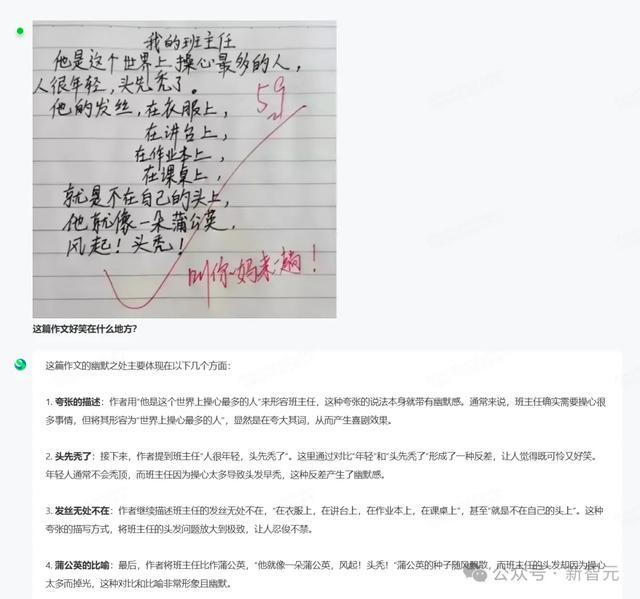 我的班主任
他是这个世界上操心最多的人，
人很年轻，头先秃了。
他的发丝，在衣服上，
在讲台上，
在作业本上，
在课桌上，
就是不在自己的头上，
他就像一朵蒲公英，
风起！头秃！
59
叫你妈来一趟！
这篇作文好笑在什么地方？
这篇作文的幽默之处主要体现在以下几个方面：
1. 夸张的描述：作者用"他是这个世界上操心最多的人"来形容班主任，这种夸张的说法本身就带有幽默感。通常来说，班主任确实需要操心很
多事情，但将其形容为"世界上操心最多的人"，显然是在夸大其词，从而产生喜剧效果。
2. 头先秃了：接下来，作者提到班主任"人很年轻，头先秃了"。这里通过对比"年轻"和"头先秃了"形成了一种反差，让人觉得既可怜又好笑。
年轻人通常不会秃顶，而班主任因为操心太多导致头发早秃，这种反差产生了幽默感。
3. 发丝无处不在：作者继续描述班主任的发丝无处不在，"在衣服上，在讲台上，在作业本上，在课桌上"，甚至"就是不在自己的头上"。这种
夸张的描写方式，将班主任的头发问题放大到极致，让人忍俊不禁。
4. 蒲公英的比喻：最后，作者将班主任比作蒲公英，"他就像一朵蒲公英，风起！头秃！"蒲公英的种子随风飘散，而班主任的头发却因为操心
太多而掉光，这种对比和比喻非常形象且幽默。
公众号·新智元